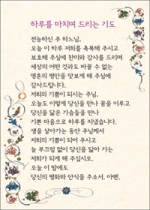 하루를 마치며 드리는 기도
전능하신 주 하느님,
오늘 이 하루 저희를 축복해 주시고
보호해 주심에 찬미와 감사를 드리며
세상의 어떤 것과도 바꿀 수 없는
영혼의 평안을 맛보게 해 주심에
감사드립니다.
저희의 기쁨이 되시는 주님,
오늘도 이렇게 당신을 만나 꿈을 이루고
당신을 닮은 가슴들을 만나
기쁜 마음으로 하루를 지냈습니다.
생을 살아가는 동안 주님께서
저희의 기쁨이 되어 주시고
늘 부끄럼 없이 당신을 닮아 가는
저희가 되게 해 주십시오.
오늘 이 밤에도
당신의 평화와 안식을 주소서, 아멘.